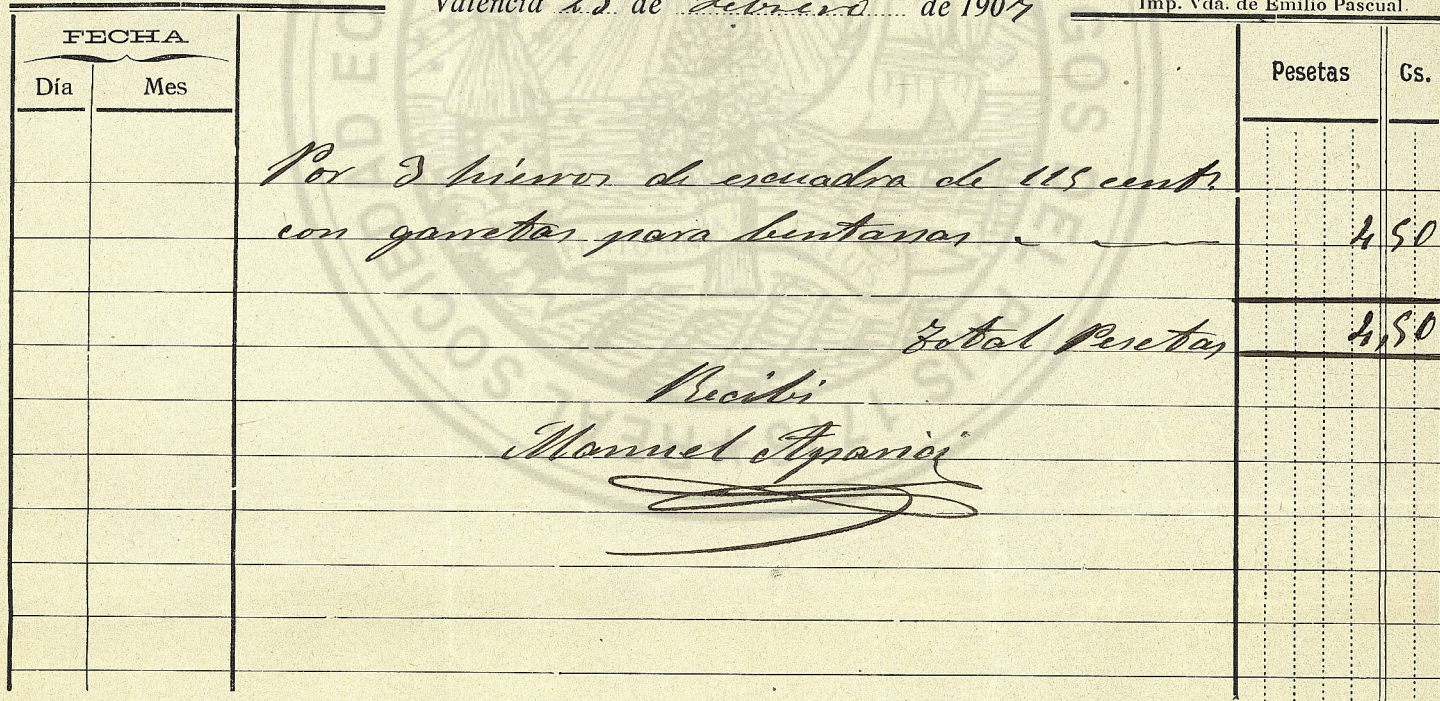 Valencia 23 de Febrero de 1907
Imp. Vda. de Emilio Pascual.
FECHA
Día Mes
Pesetas Cs.
Por 3 hierros de escuadra de 115 cents.
con garretas para bentanas 4 50
Total Pesetas 4,50
Recibi
Manuel Aparici
REAL SOCIEDAD ECO GOS DEL PAIS 177